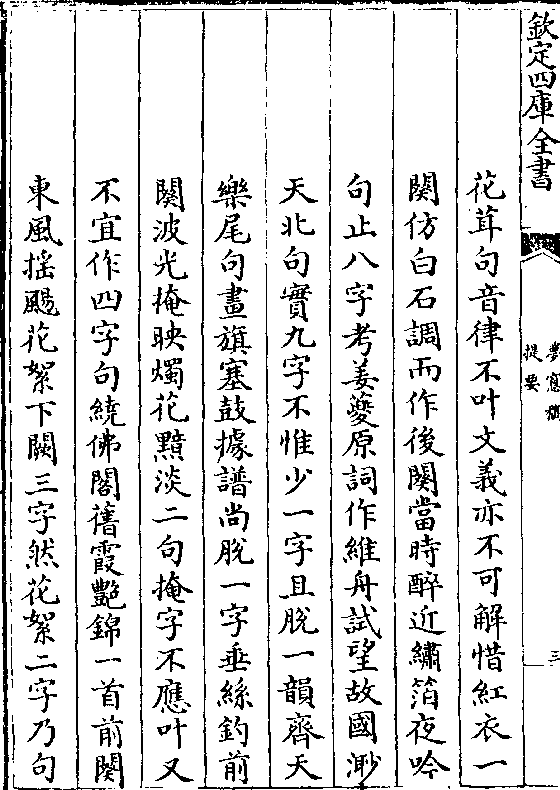 欽定四庫全書
提要
三
花茸句音律不叶文義亦不可解惜紅衣一
闋仿白石調而作後闋當時醉近繡箔夜吟
句止八字考姜夔原詞作維舟試望故國渺
天北句實九字不惟少一字且脱一韻齊天
樂尾句畫旗塞鼓據譜尚脱一字垂絲釣前
闋波光掩映燭花黯淡二句掩字不應叶又
不宜作四字句繞佛閣舊霞艷錦一首前闋
東風揺颺花絮下闕三字然花絮二字乃句